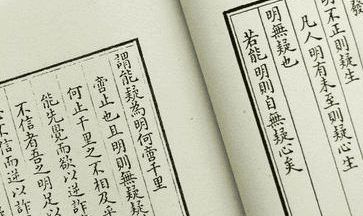 發
明不正則疑生
凡人明有未至則疑心生
明無疑也
若能明則自無疑心矣
謂能疑為明何啻千里
啻止也且明則無疑
何止千里之不相及乎
能先覺而欲以逆詐
不信者吾之明足以
不信而逆以詐